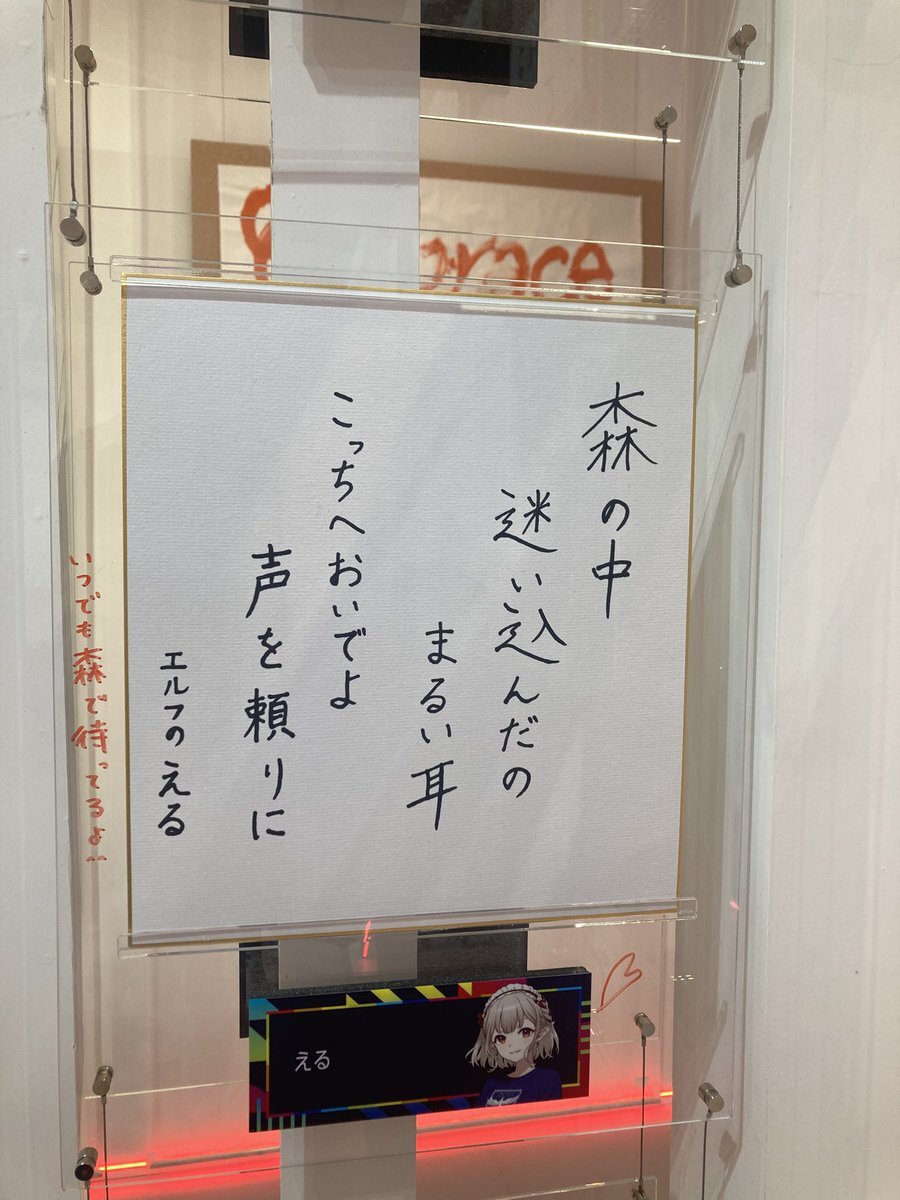 森の中
迷い込んだの
まるい耳
こっちへおいでよ
声を頼りに
エルフのえる
いつでも森で待ってるよ
える